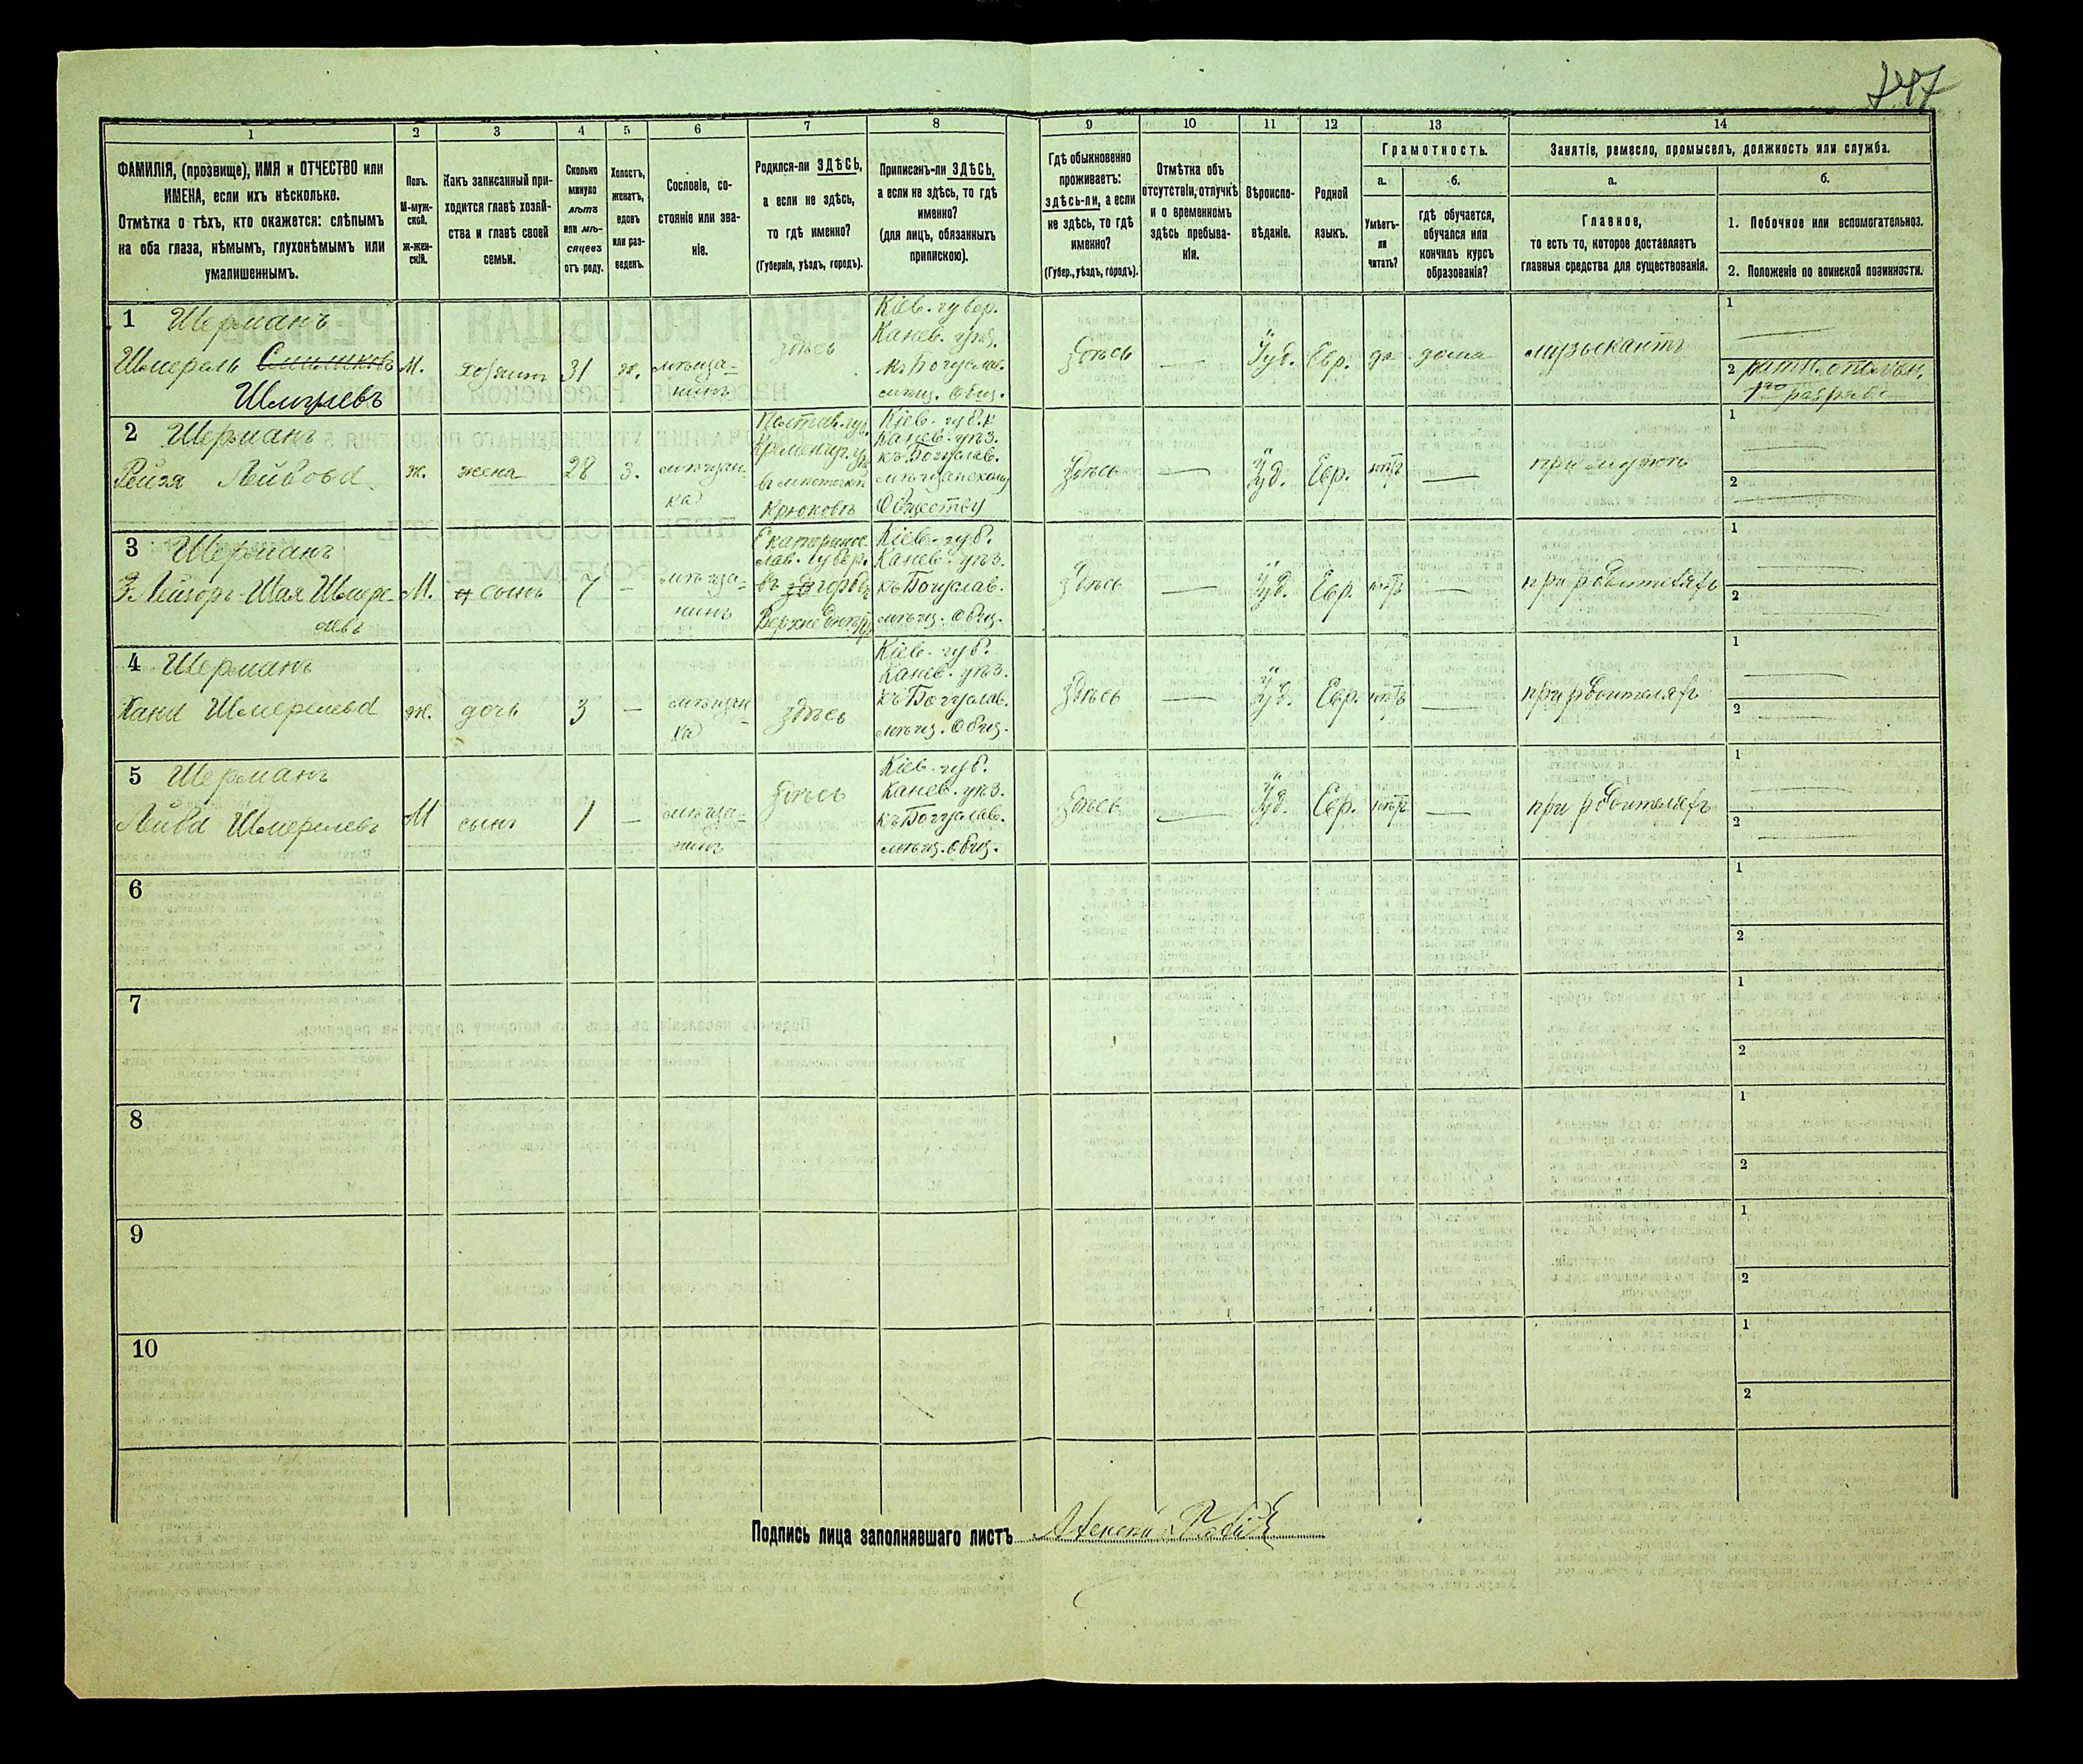 247
1
2
3
4
5
6
7
8
9
10
11
12
13
14
ФАМИЛІЯ, (прозвище), ИМЯ и ОТЧЕСТВО или
ИМЕНА, если ихъ нѣсколько.
Отмѣтка о тѣхъ, кто окажется: слѣпымъ
на оба глаза, нѣмымъ, глухонѣмымъ или
умалишеннымъ.
Полъ.
М-муж-
ской.
Ж-жен-
скій.
Какъ записанный при-
ходится главѣ хозяй-
ства и главѣ своей
семьи.
Сколько
минуло
лѣтъ
или мѣ-
сяцевъ
отъ роду.
Холостъ,
женатъ,
вдовъ
или раз-
веденъ.
Сословіе, со-
стояніе или зва-
ніе.
Родился-ли ЗДѢСЬ,
а если не здѣсь,
то гдѣ именно?
(Губернія, уѣздъ, городъ).
Приписанъ-ли ЗДѢСЬ,
а если не здѣсь, то гдѣ
именно?
(для лицъ, обязанныхъ
припискою).
Гдѣ обыкновенно
проживаетъ:
здѣсь-ли, а если
не здѣсь, то гдѣ
именно?
(Губер., уѣздъ, городъ).
Отмѣтка объ
отсутствіи, отлучкѣ
и о временномъ
здѣсь пребыва-
ніи.
Вѣроиспо-
вѣданіе.
Родной
языкъ.
Грамотность.
а.
б.
Умѣетъ-
ли
читать?
гдѣ обучается,
обучался или
кончилъ курсъ
образованія?
Занятіе, ремесло, промыселъ, должность или служба.
а.
б.
Главное,
то есть то, которое доставляетъ
главныя средства для существованія.
1. Побочное или вспомогательноз.
2. Положеніе по воинской повинности.
1 Шерманъ
Шмерель
Шмулевъ
М.
хозяинъ
31
ж.
мѣща-
нинъ
здѣсь
Кіев. губер.
Канев. уѣз.
къ Богуслав.
мѣщ. Общ.
здѣсь
—
Іуд.
Евр.
да
дома
музыкантъ
1
2 ратн. ополчен.
1го разряда
2 Шерманъ
Рейзя Лейбова
ж.
жена
28
З.
мѣщан-
ка
Полтав. губ.
Кременчуг. уѣз
въ мѣстечкѣ
Крюковѣ
Кіев. губ.
Канев. уѣз.
къ Богуслав.
мѣщанскому
Обществу
здѣсь
—
Іуд.
Евр.
нѣтъ
—
при мужѣ
1
2
3 Шерманъ
Лейзоръ-Шая Шмере-
левъ
М.
сынъ
7
—
мѣща-
нинъ
Екатерино-
слав. губер.
въ городѣ
Верхнеднѣпр
Кіев. губ.
Канев. уѣз.
къ Богуслав.
мѣщ. Общ.
здѣсь
—
Іуд.
Евр.
нѣтъ
—
при родителяхъ
1
2
4 Шерманъ
Хана Шмерелева
ж.
дочь
3
—
мѣщан-
ка
здѣсь
Кіев. губ.
Канев. уѣз.
къ Богуслав.
мѣщ. Общ.
здѣсь
—
Іуд.
Евр.
нѣтъ
—
при родителяхъ
1
2
5 Шерманъ
Лейба Шмерелевъ
М
сынъ
1
—
мѣща-
нинъ
здѣсь
Кіев. губ.
Канев. уѣз.
къ Богуслав.
мѣщ. Общ.
здѣсь
—
Іуд.
Евр.
нѣтъ
—
при родителяхъ
1
2
6
1
2
7
1
2
8
1
2
9
1
2
10
1
2
Подпись лица заполнявшаго листъ